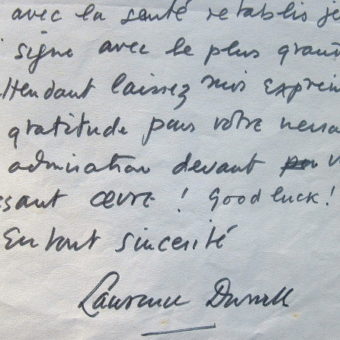 avec la santé retablis je
signe avec le plus gran
ttendant laissez moi exprim
gratitude pour votre messa
admiration devant v
sant œuvre ! Good luck !
En tout sincerité
Lawrence Durrell